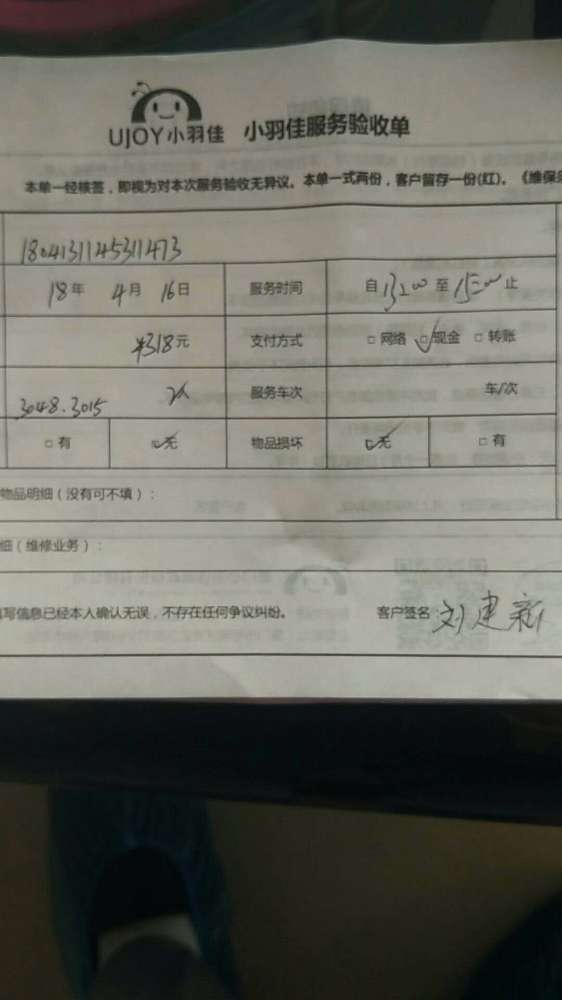 UJOY小羽佳 小羽佳服务验收单
本单一经核签，即视为对本次服务验收无异议。本单一式两份，客户留存一份(红)。《维保
1804131145311473
18年 4月 16日 服务时间 自13:00至15:00止
¥318元 支付方式 □网络 ☑现金 □转账
3048.3015 2人 服务车次 车/次
□有 ☑无 物品损坏 ☑无 □有
物品明细（没有可不填）：
细（维修业务）：
写信息已经本人确认无误，不存在任何争议纠纷。 客户签名 刘建新